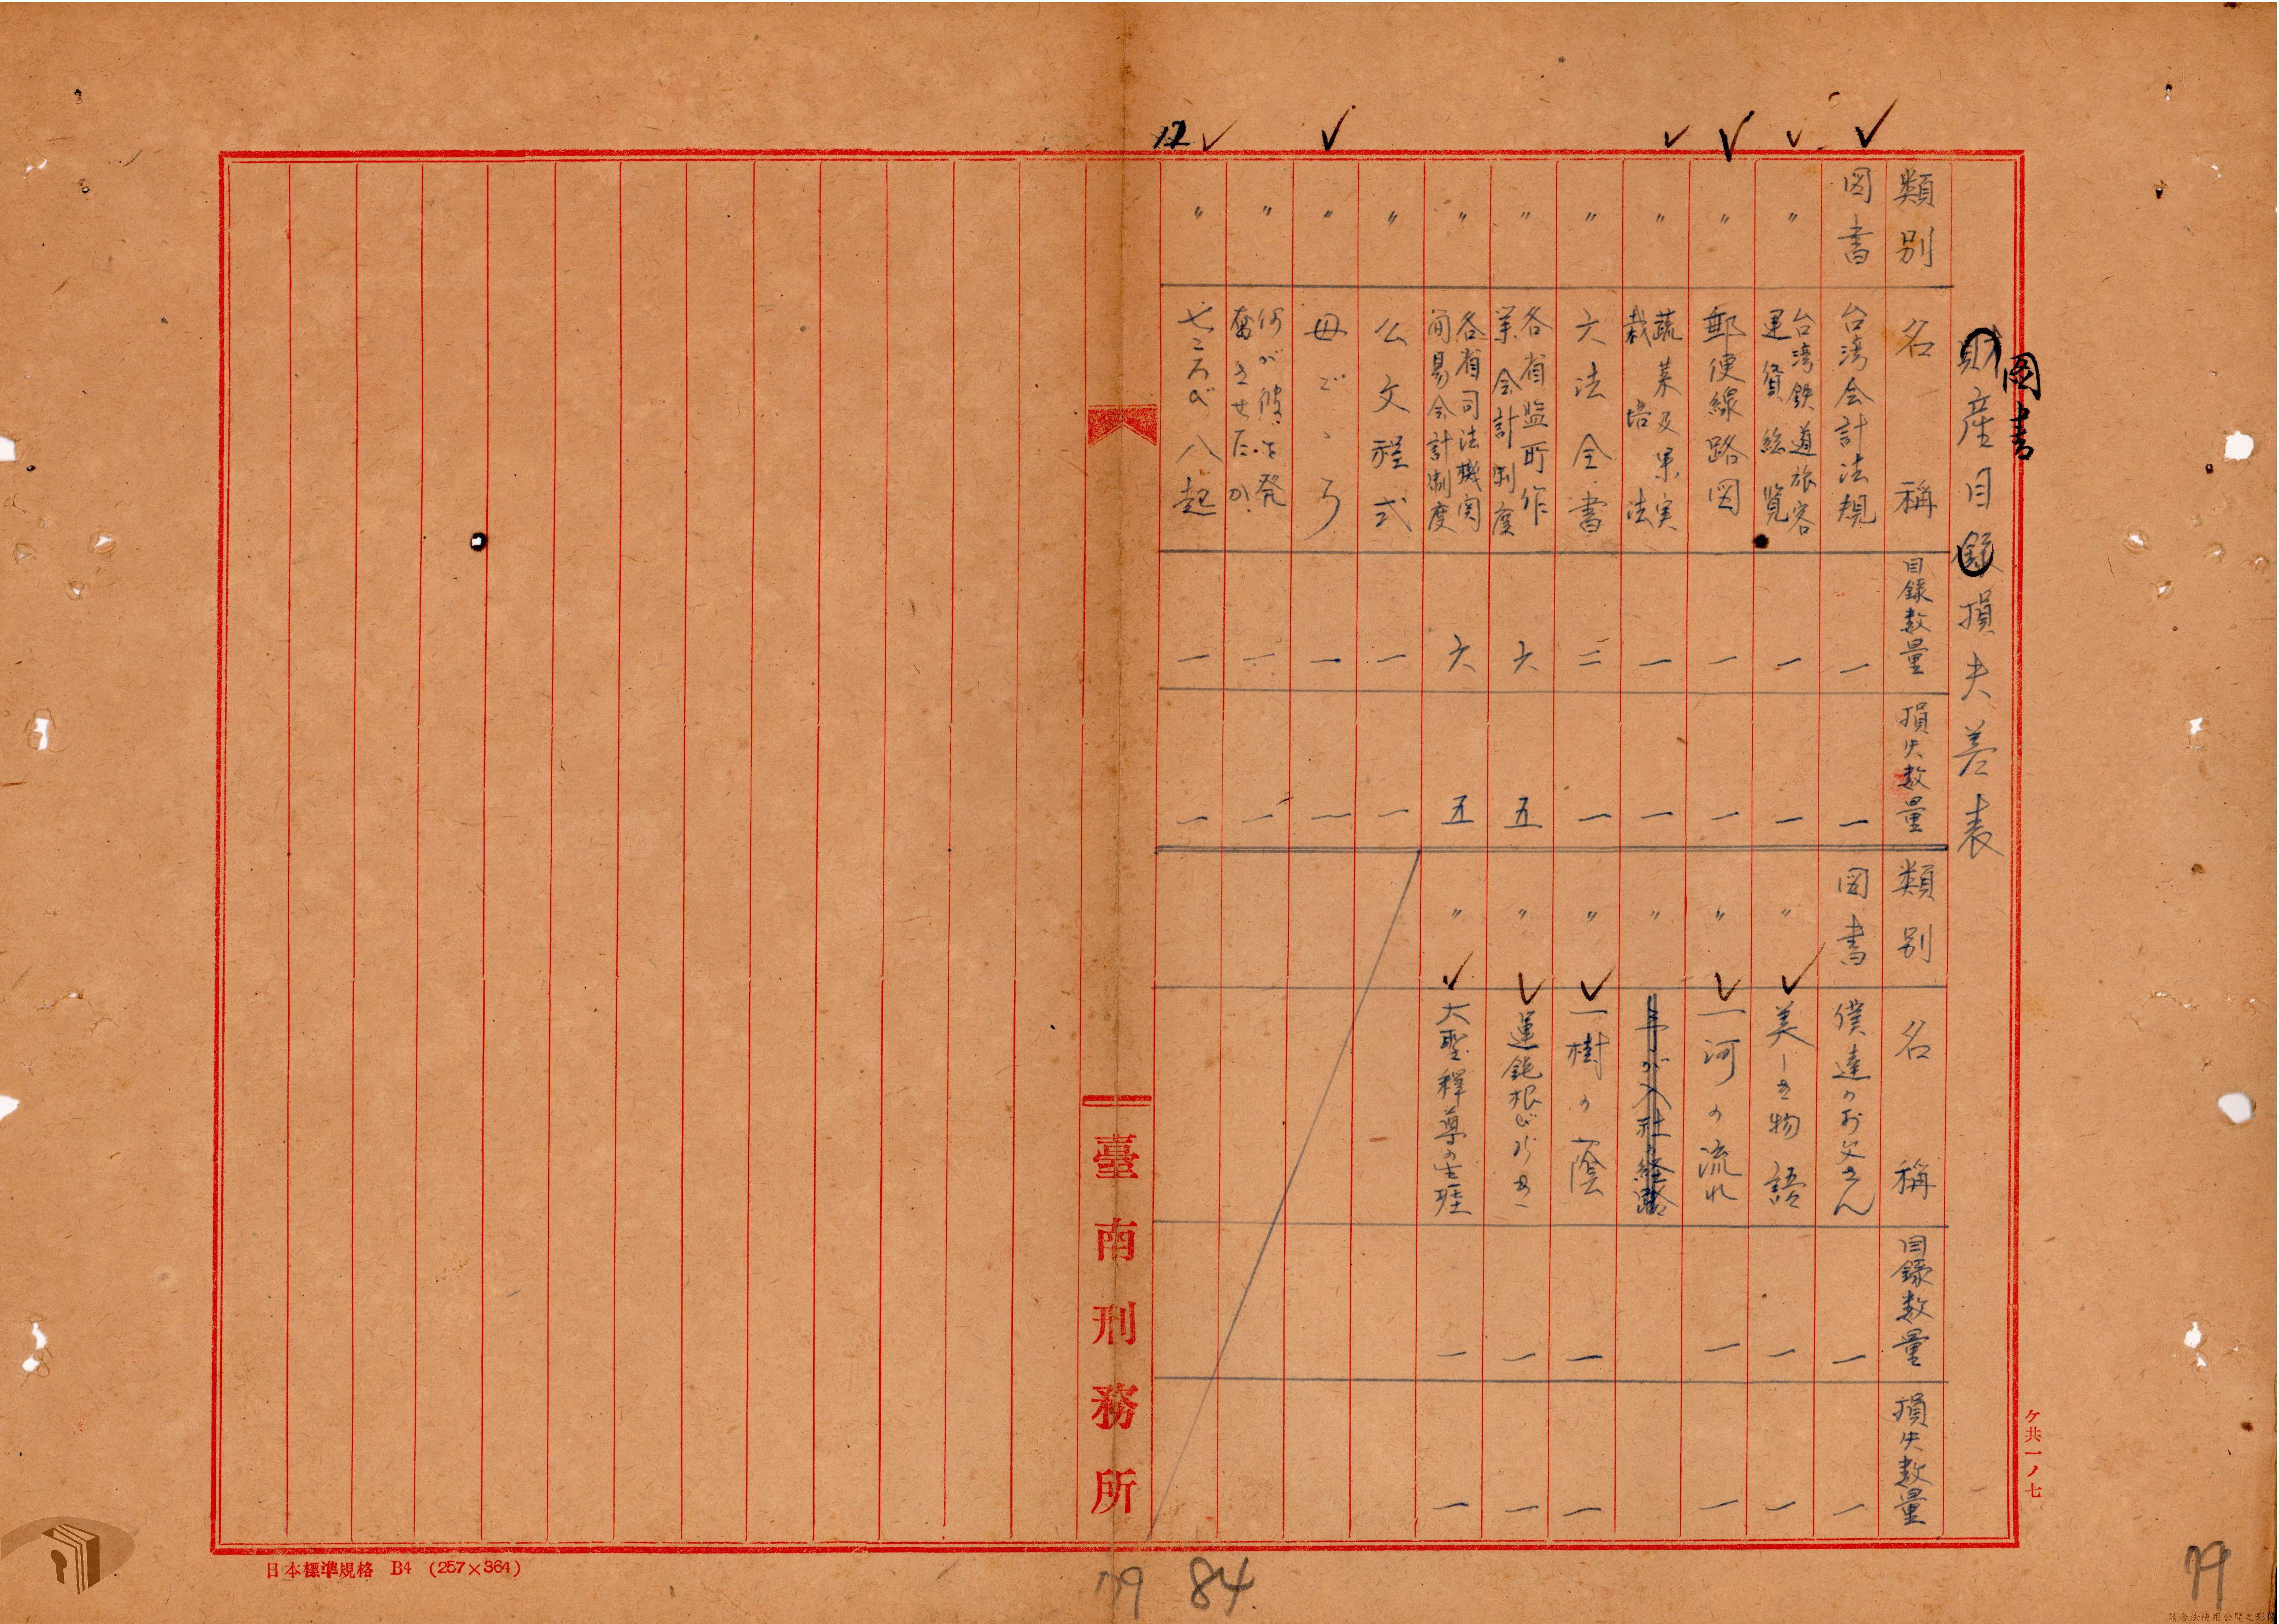 財産目録損失差表
図書
類別 名稱 目録数量 損失数量
図書 台湾会計法規 一 一
〃 台湾鉄道旅客運賃総覧 一 一
〃 郵便線路図 一 一
〃 蔬菜及果実栽培法 一 一
〃 六法全書 二 一
〃 各省監所作業会計制度 六 五
〃 各省司法機関簡易会計制度 六 五
〃 公文程式 一 一
〃 母ごゝろ 一 一
〃 何が彼を発奮させたか 一 一
〃 七ころび八起 一 一
類別 名稱 目録数量 損失数量
図書 僕達のお父さん 一 一
〃 美しき物語 一 一
〃 一河の流れ 一 一
〃 入社の経路
〃 一樹の蔭 一 一
〃 運鈍根 一 一
〃 大聖釋尊の生涯 一 一
12
臺南刑務所
ケ共一ノ七
日本標準規格 B4 (257×364)
79 84
79
請合法使用公開之影像